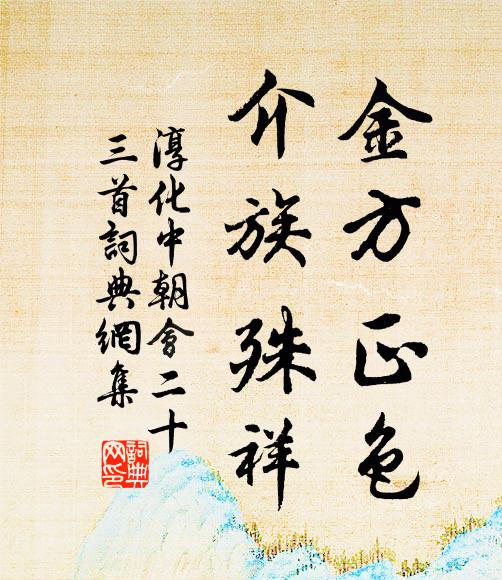 金方正色
介族殊祥
淳化中朝會二十
三首詞典網集
詞典
网印